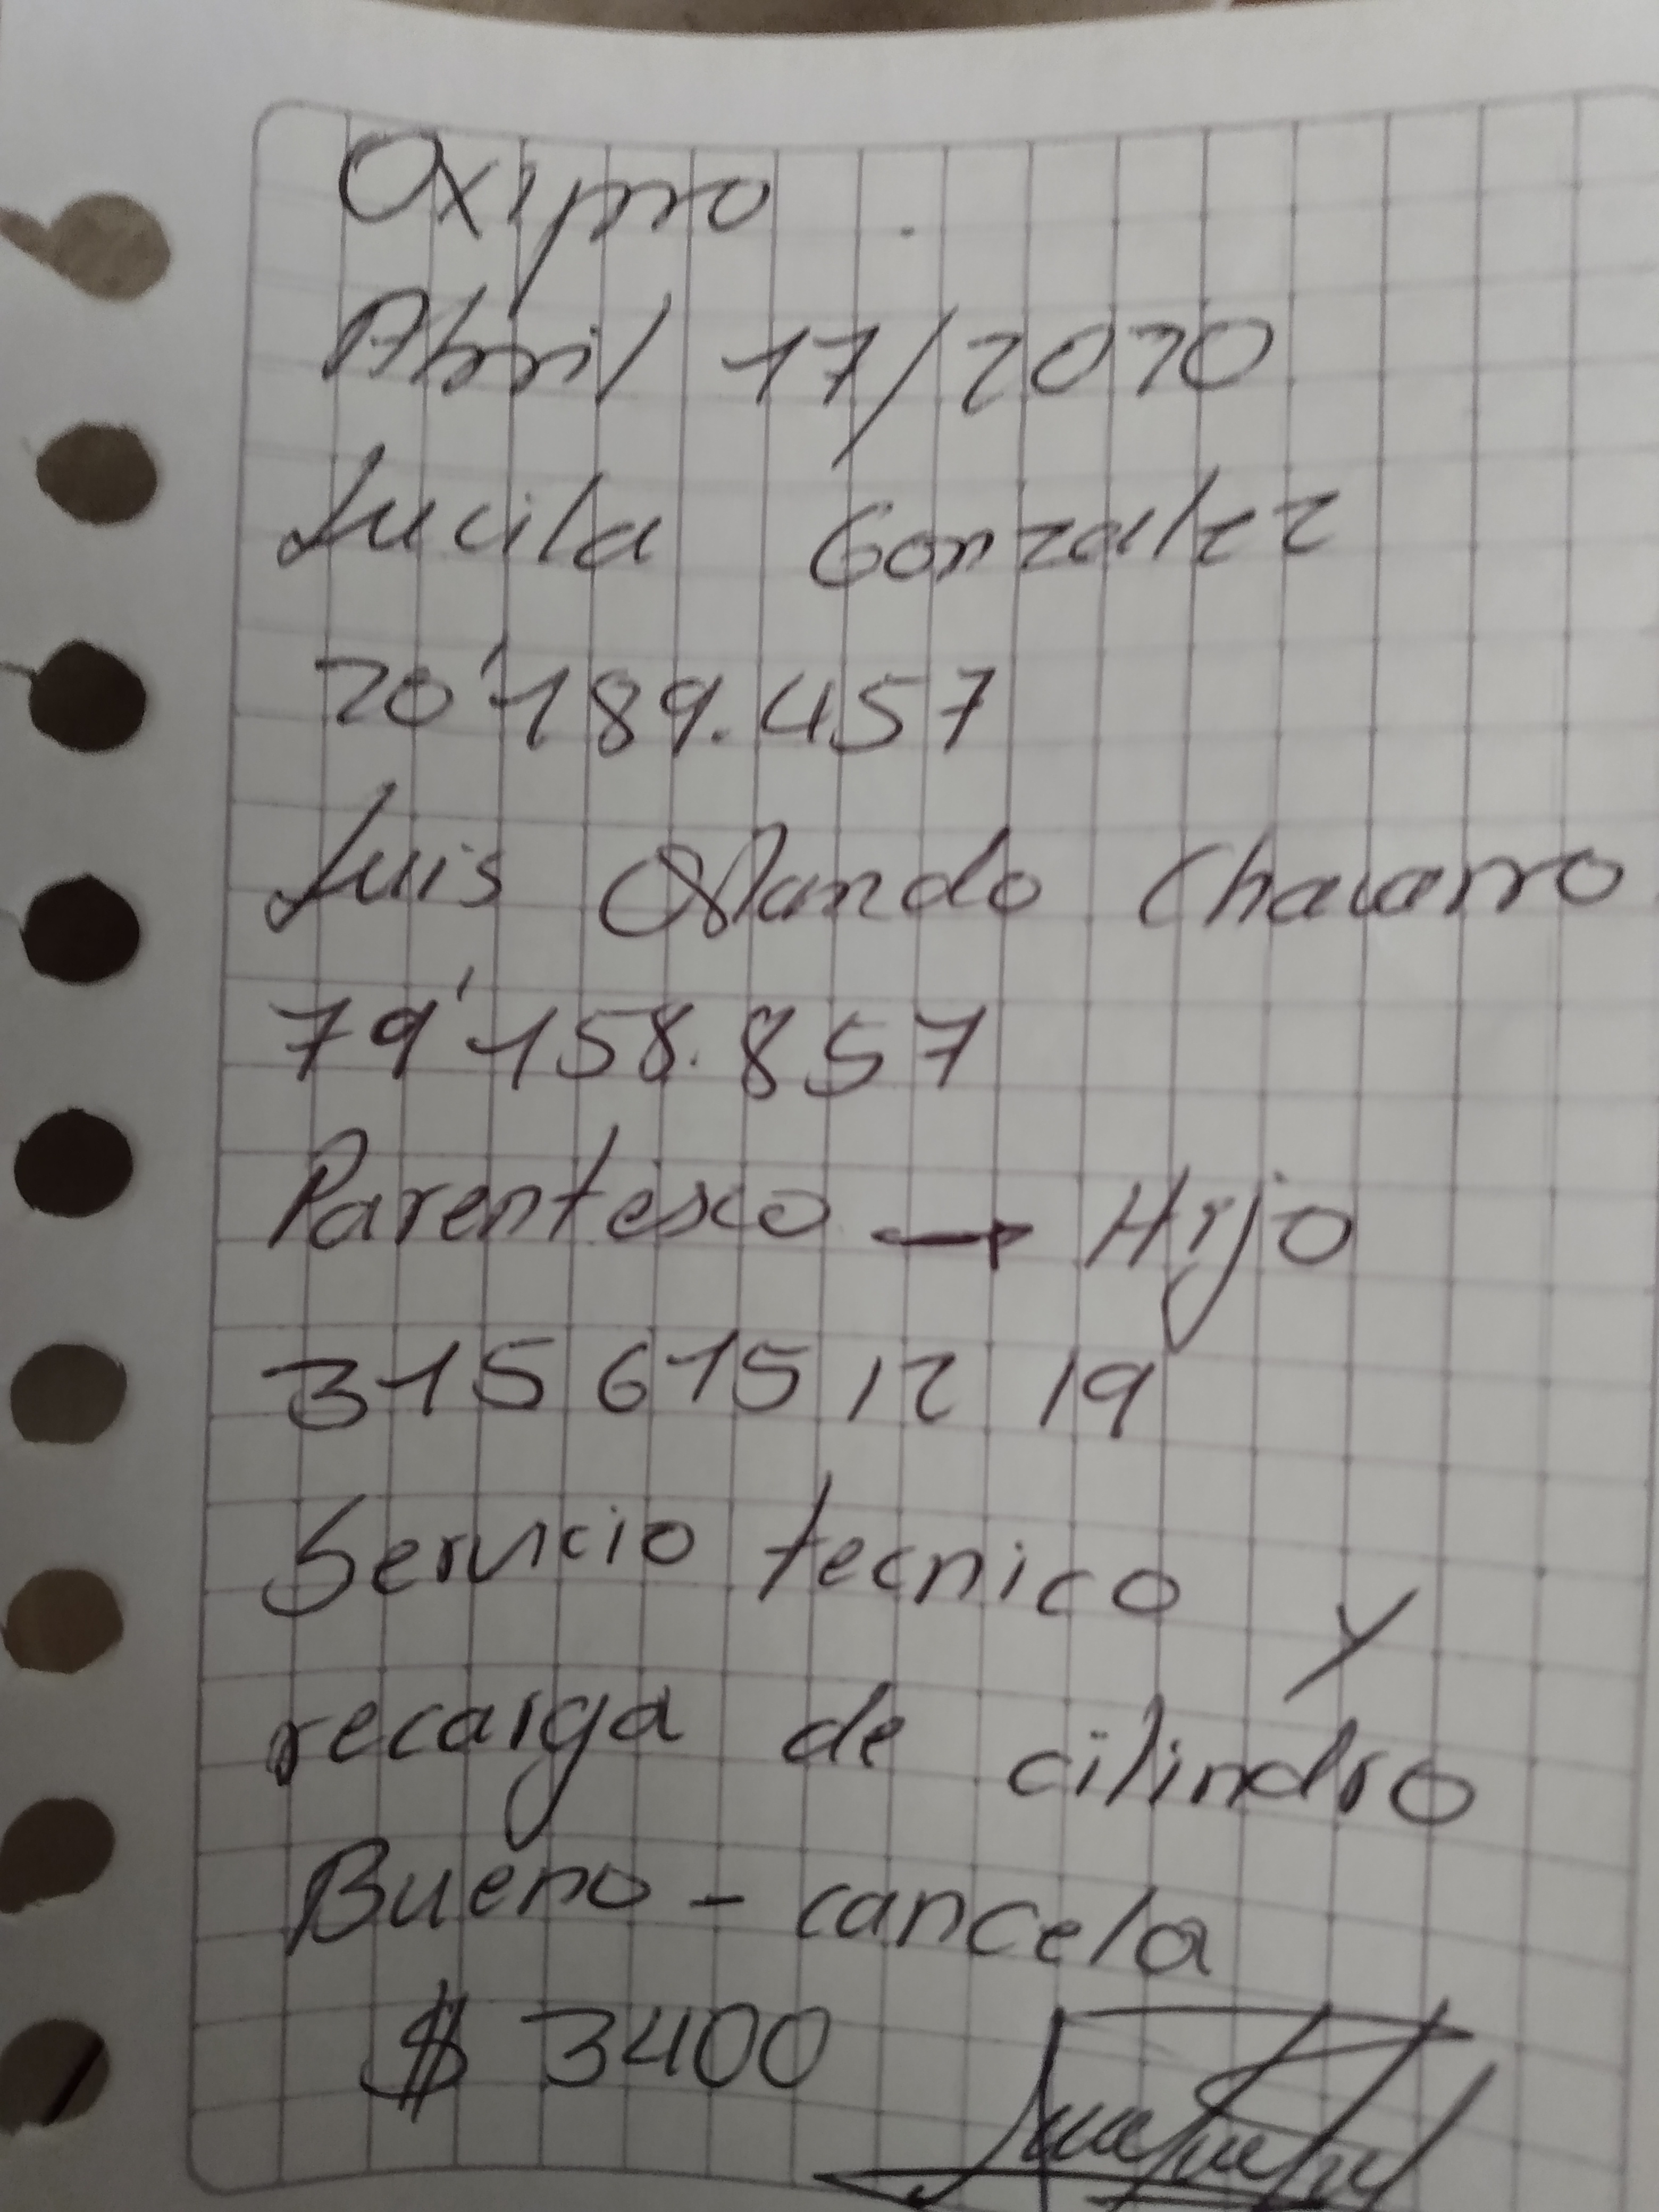 Oxipro
Abril 17/2020
Lucila Gonzalez
20'189.457
Luis Orlando Chavarro
79'158.857
Parentesco → Hijo
315 615 12 19
Servicio tecnico y
recarga de cilindro
Bueno - cancela
$ 3400